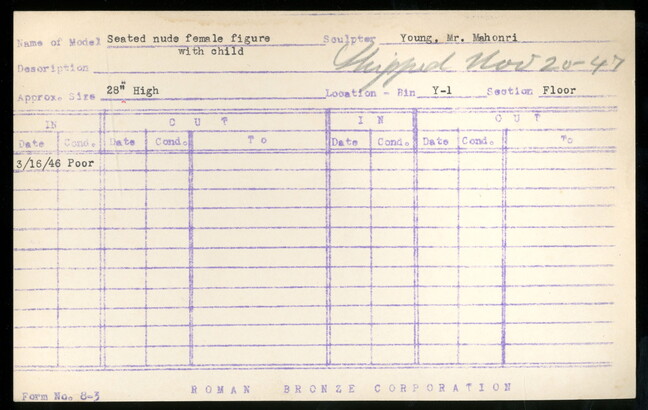 Name of Model Seated nude female figure Sculptor Young, Mr. Mahonri
with child
Description Shipped Nov 20-47
Approx. Size 28" High Location - Bin Y-1 Section Floor
IN OUT IN OUT
Date Cond. Date Cond. To Date Cond. Date Cond. To
3/16/46 Poor
Form No. 8-3 ROMAN BRONZE CORPORATION